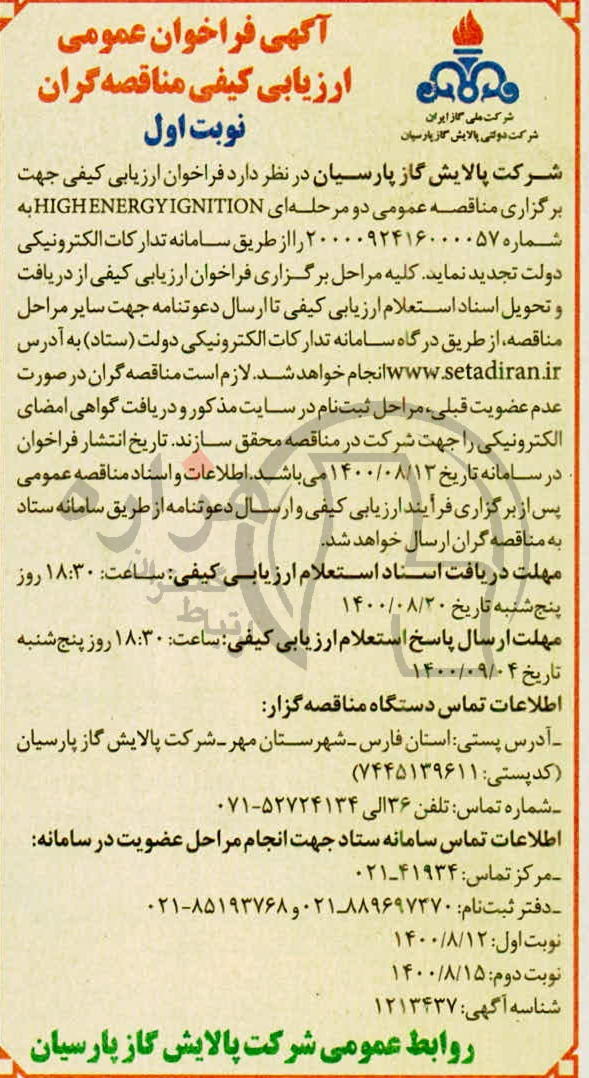 آگهی فراخوان عمومی
ارزیابی کیفی مناقصه‌گران
نوبت اول
شرکت ملی گاز ایران
شرکت دولتی پالایش گاز پارسیان
شرکت پالایش گاز پارسیان در نظر دارد فراخوان ارزیابی کیفی جهت
برگزاری مناقصه عمومی دو مرحله‌ای HIGH ENERGY IGNITION به
شماره ۲۰۰۰۰۹۲۴۱۶۰۰۰۰۵۷ را از طریق سامانه تدارکات الکترونیکی
دولت تجدید نماید. کلیه مراحل برگزاری فراخوان ارزیابی کیفی از دریافت
و تحویل اسناد استعلام ارزیابی کیفی تا ارسال دعوتنامه جهت سایر مراحل
مناقصه، از طریق درگاه سامانه تدارکات الکترونیکی دولت (ستاد) به آدرس
www.setadiran.ir انجام خواهد شد. لازم است مناقصه‌گران در صورت
عدم عضویت قبلی، مراحل ثبت‌نام در سایت مذکور و دریافت گواهی امضای
الکترونیکی را جهت شرکت در مناقصه محقق سازند. تاریخ انتشار فراخوان
در سامانه تاریخ ۱۴۰۰/۰۸/۱۳ می‌باشد. اطلاعات و اسناد مناقصه عمومی
پس از برگزاری فرآیند ارزیابی کیفی و ارسال دعوتنامه از طریق سامانه ستاد
به مناقصه‌گران ارسال خواهد شد.
مهلت دریافت اسناد استعلام ارزیابی کیفی: ساعت: ۱۸:۳۰ روز
پنج‌شنبه تاریخ ۱۴۰۰/۰۸/۲۰
مهلت ارسال پاسخ استعلام ارزیابی کیفی: ساعت: ۱۸:۳۰ روز پنج‌شنبه
تاریخ ۱۴۰۰/۰۹/۰۴
اطلاعات تماس دستگاه مناقصه‌گزار:
ـ آدرس پستی: استان فارس ـ شهرستان مهر ـ شرکت پالایش گاز پارسیان
(کدپستی: ۷۴۴۵۱۳۹۶۱۱)
ـ شماره تماس: تلفن ۳۶ الی ۵۲۷۲۴۱۳۴-۰۷۱
اطلاعات تماس سامانه ستاد جهت انجام مراحل عضویت در سامانه:
ـ مرکز تماس: ۴۱۹۳۴ـ۰۲۱
ـ دفتر ثبت‌نام: ۸۸۹۶۹۷۳۷۰ـ۰۲۱ و ۸۵۱۹۳۷۶۸-۰۲۱
نوبت اول: ۱۴۰۰/۸/۱۲
نوبت دوم: ۱۴۰۰/۸/۱۵
شناسه آگهی: ۱۲۱۳۴۳۷
روابط عمومی شرکت پالایش گاز پارسیان